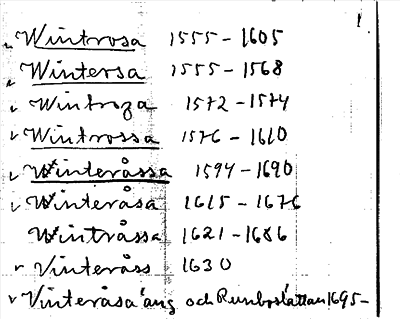 Wintrosa 1555-1605
Wintersa 1555-1568
Wintroza 1572-1574
Wintrossa 1576-1610
Winteråssa 1594-1690
Winteråsa 1615-1676
Wintråssa 1621-1686
Vinteråss 1630
Vinteråsa äng och 1695-